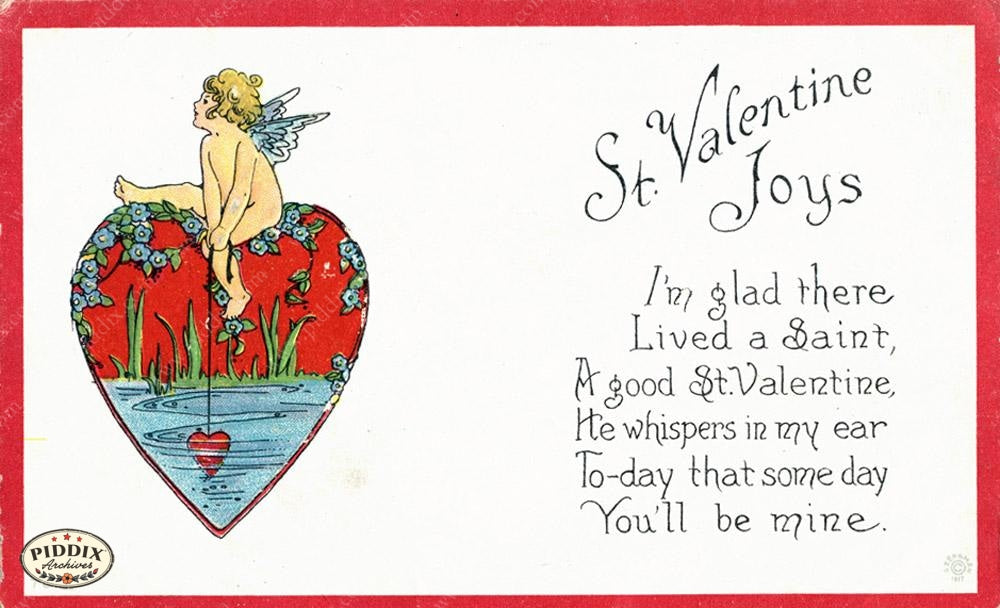 St. Valentine
Joys
I'm glad there
Lived a Saint,
A good St. Valentine,
He whispers in my ear
To-day that some day
You'll be mine.
PIDDIX
Archives
©
1917